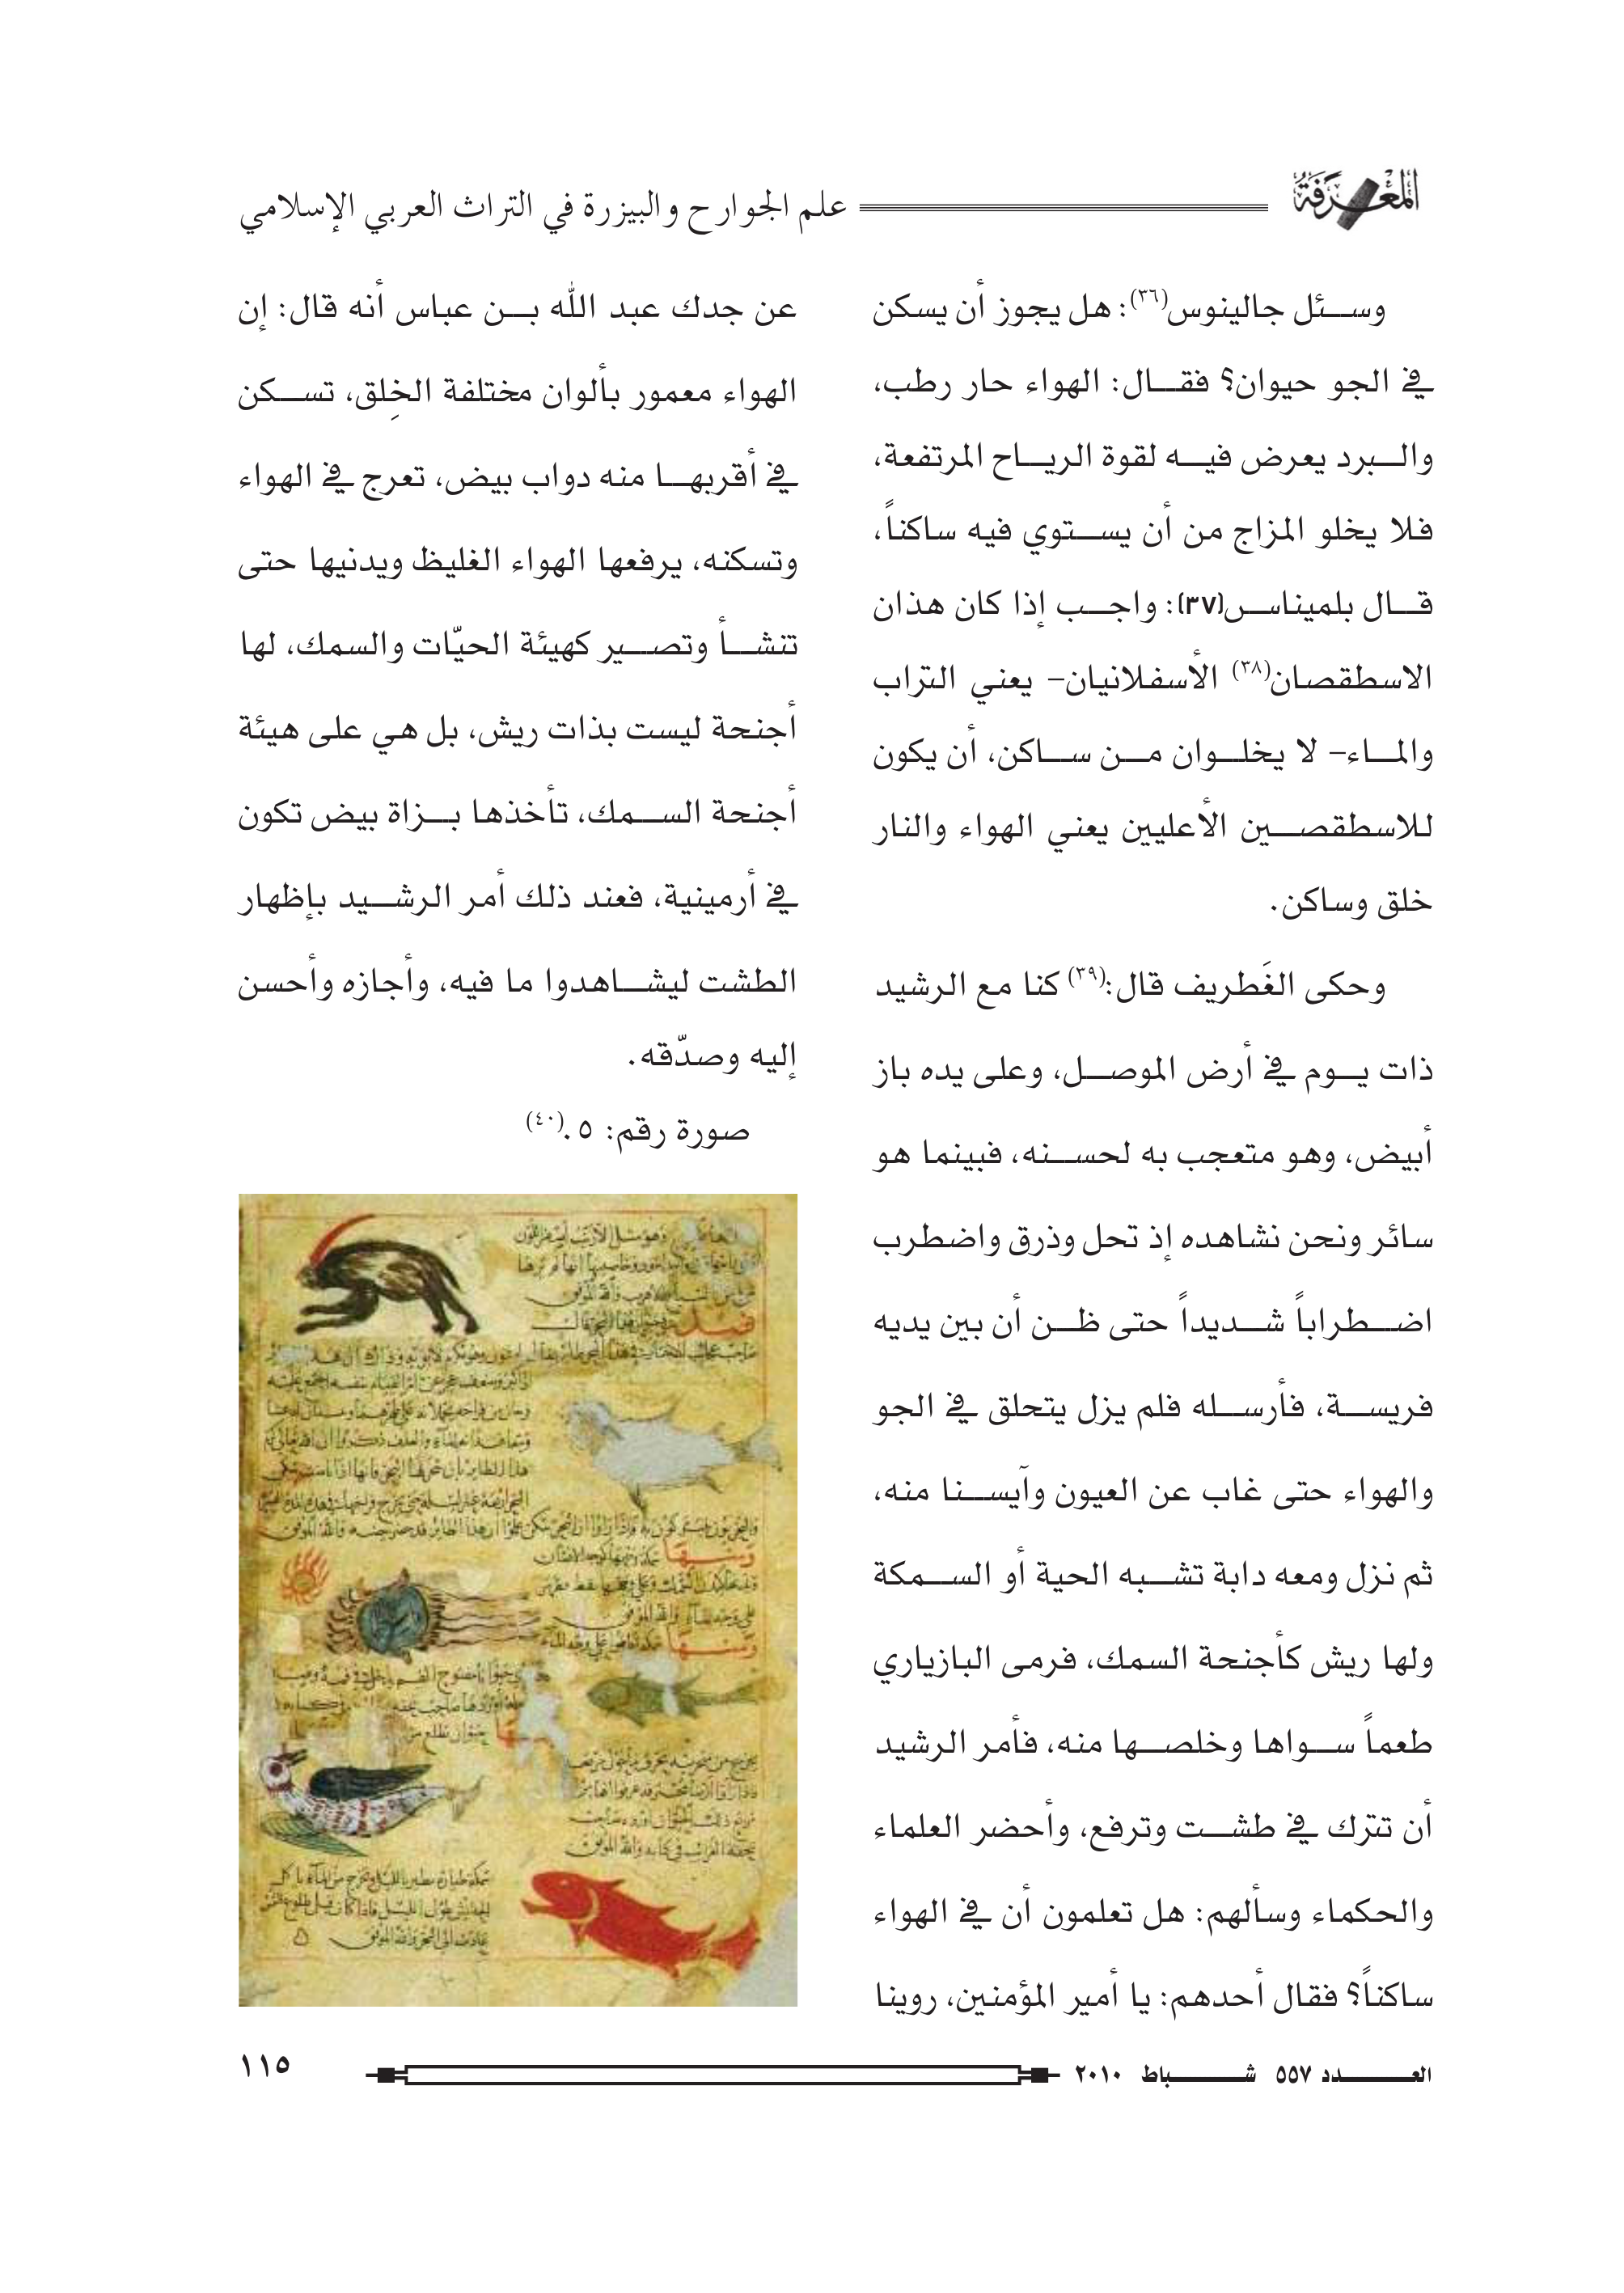 المعرفة
علم الجوارح والبيزرة في التراث العربي الإسلامي
وسئل جالينوس(٣٦): هل يجوز أن يسكن
في الجو حيوان؟ فقال: الهواء حار رطب،
والبرد يعرض فيه لقوة الرياح المرتفعة،
فلا يخلو المزاج من أن يستوي فيه ساكناً،
قال بلميناس(٣٧): واجب إذا كان هذان
الاسطقصان(٣٨) الأسفلانيان– يعني التراب
والماء– لا يخلوان من ساكن، أن يكون
للاسطقصين الأعليين يعني الهواء والنار
خلق وساكن.
وحكى الغَطريف قال:(٣٩) كنا مع الرشيد
ذات يوم في أرض الموصل، وعلى يده باز
أبيض، وهو متعجب به لحسنه، فبينما هو
سائر ونحن نشاهده إذ تحل وذرق واضطرب
اضطراباً شديداً حتى ظن أن بين يديه
فريسة، فأرسله فلم يزل يتحلق في الجو
والهواء حتى غاب عن العيون وآيسنا منه،
ثم نزل ومعه دابة تشبه الحية أو السمكة
ولها ريش كأجنحة السمك، فرمى البازياري
طعماً سواها وخلصها منه، فأمر الرشيد
أن تترك في طشت وترفع، وأحضر العلماء
والحكماء وسألهم: هل تعلمون أن في الهواء
ساكناً؟ فقال أحدهم: يا أمير المؤمنين، روينا
عن جدك عبد الله بن عباس أنه قال: إن
الهواء معمور بألوان مختلفة الخِلق، تسكن
في أقربها منه دواب بيض، تعرج في الهواء
وتسكنه، يرفعها الهواء الغليظ ويدنيها حتى
تنشأ وتصير كهيئة الحيّات والسمك، لها
أجنحة ليست بذات ريش، بل هي على هيئة
أجنحة السمك، تأخذها بزاة بيض تكون
في أرمينية، فعند ذلك أمر الرشيد بإظهار
الطشت ليشاهدوا ما فيه، وأجازه وأحسن
إليه وصدّقه.
صورة رقم: ٥.(٤٠)
العدد ٥٥٧ شباط ٢٠١٠
١١٥